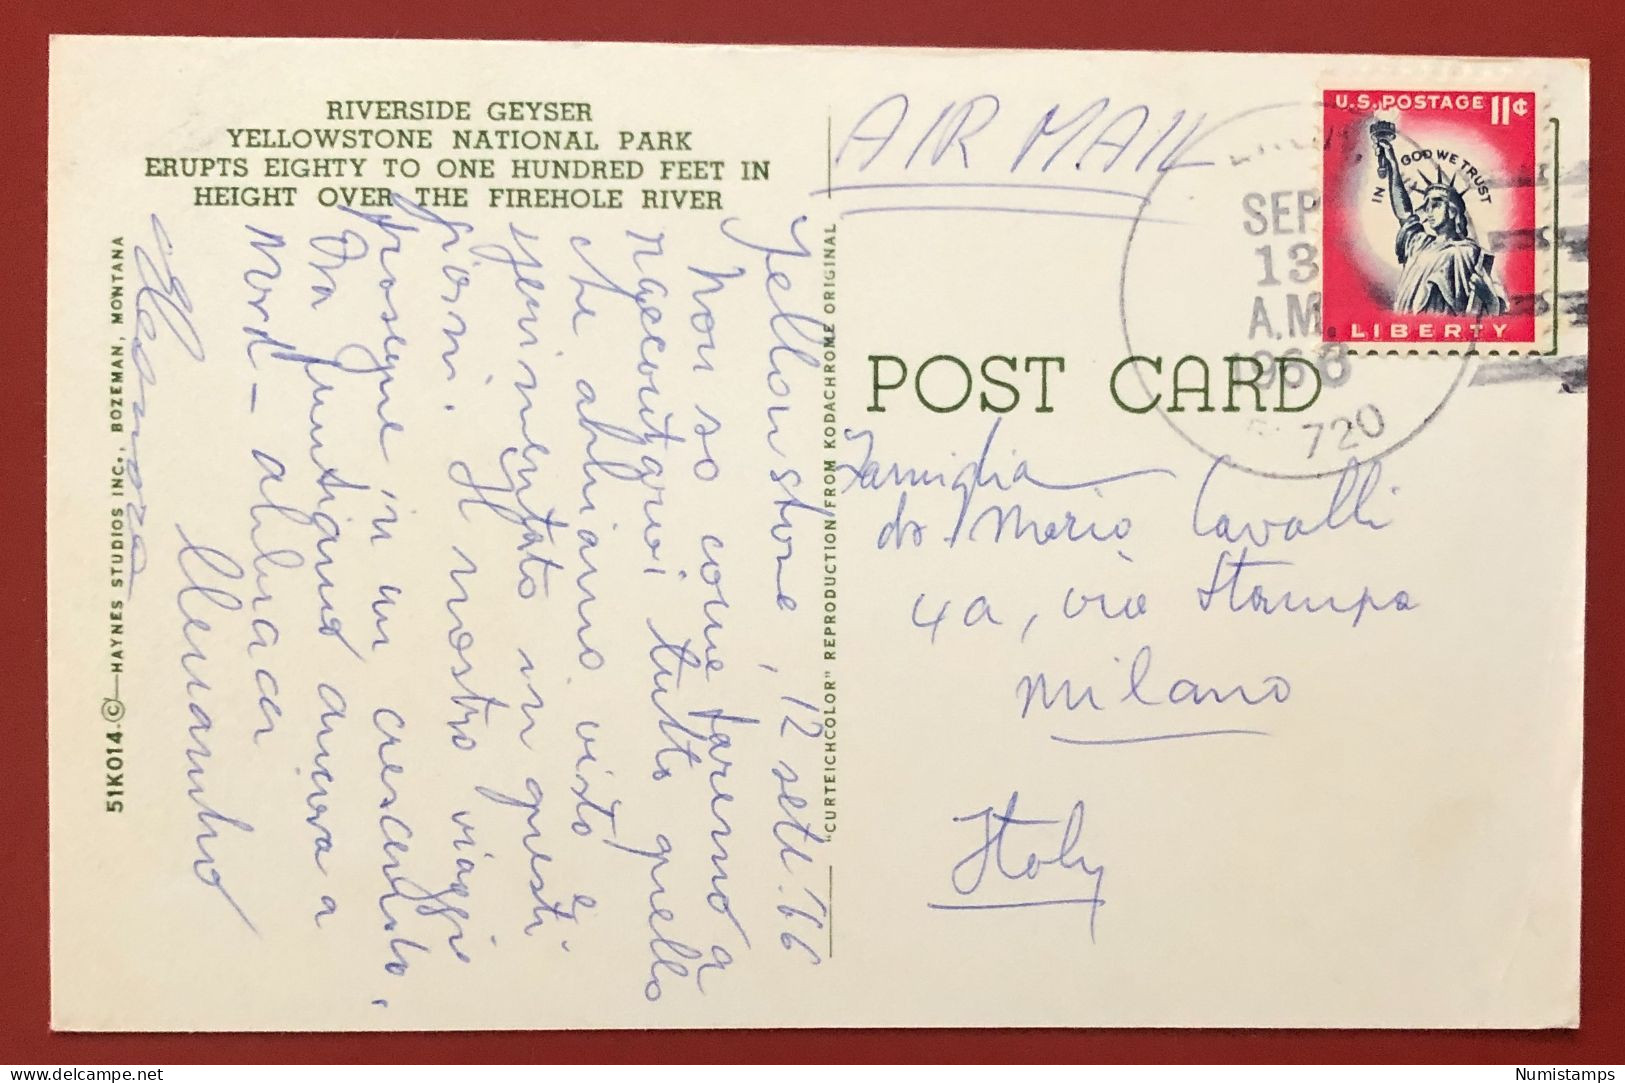 RIVERSIDE GEYSER
YELLOWSTONE NATIONAL PARK
ERUPTS EIGHTY TO ONE HUNDRED FEET IN
HEIGHT OVER THE FIREHOLE RIVER
51K014.©—HAYNES STUDIOS INC., BOZEMAN, MONTANA
Yellowstone, 12 sett. '66
Non so come faremo a
raccontarvi tutto quello
che abbiamo visto e
sperimentato in questi
giorni. Il nostro viaggio
prosegue in un crescendo.
Ora puntiamo ancora a
Nord - abbracci
Eleonora
"CURTEICHCOLOR" REPRODUCTION FROM KODACHROME ORIGINAL
AIR MAIL
U.S. POSTAGE 11¢
IN GOD WE TRUST
LIBERTY
SEP
13
A.M.
1966
720
POST CARD
Famiglia
dr. Mario Cavalli
4a, via Stampa
Milano
Italy
Numistamps